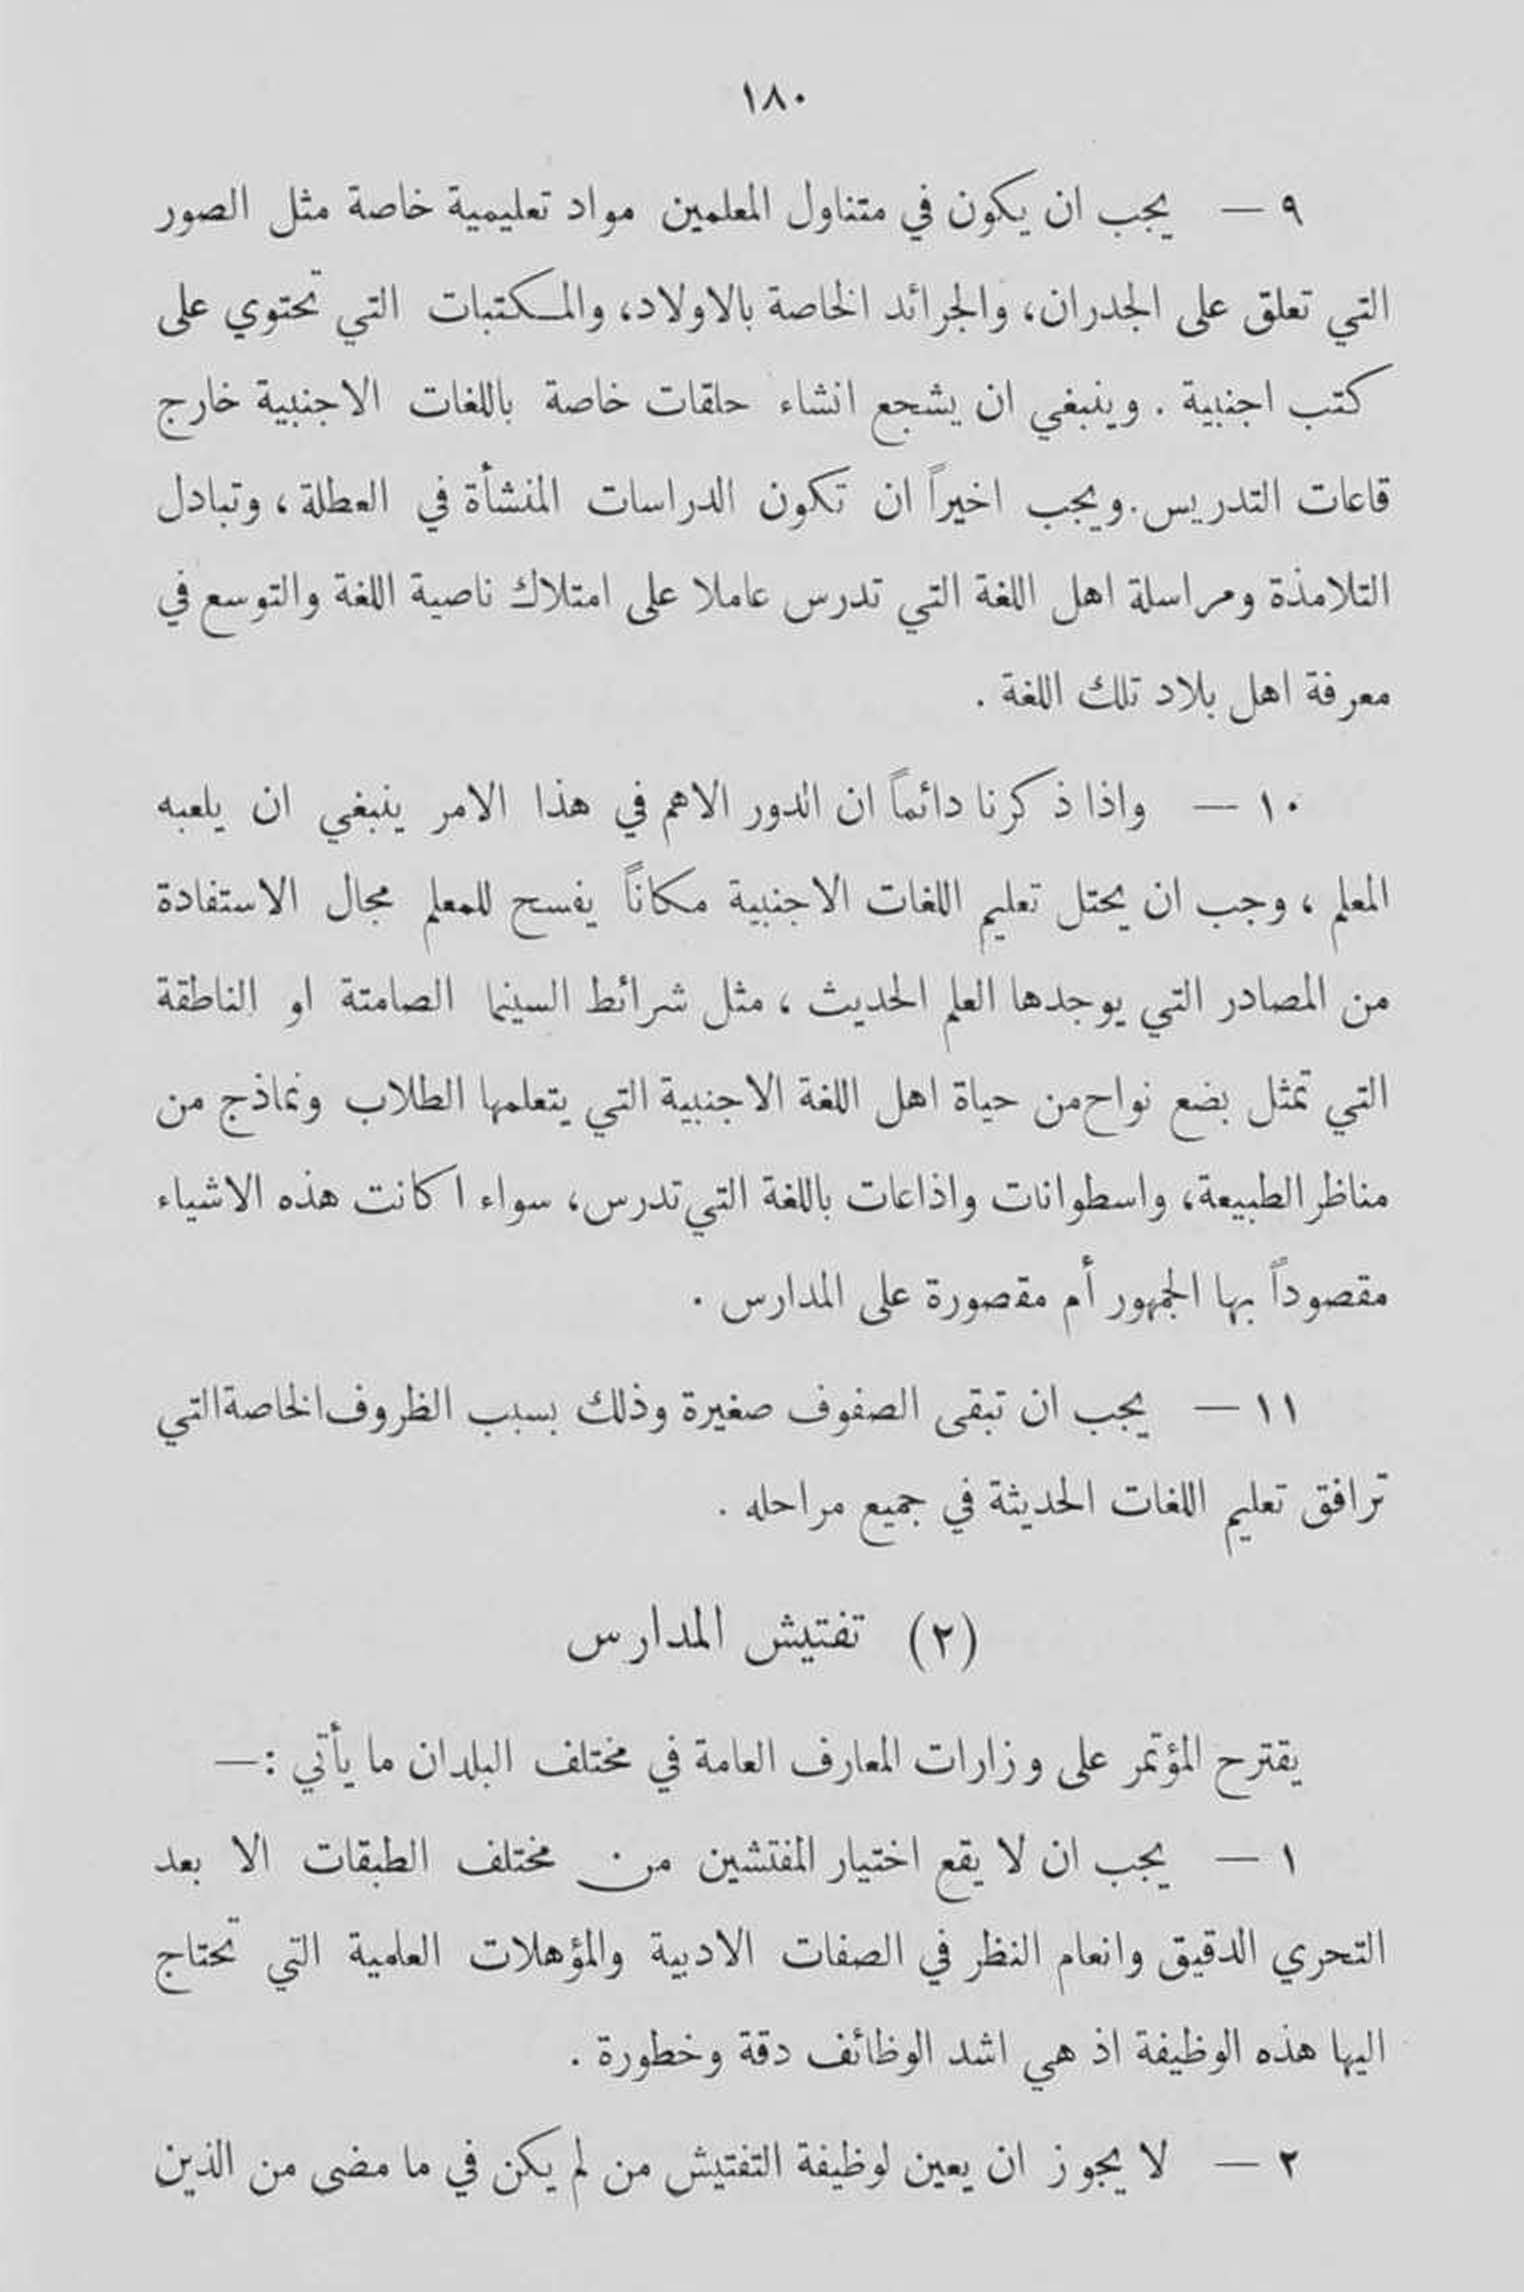 ١٨٠
٩ — يجب ان يكون في متناول المعلمين مواد تعليمية خاصة مثل الصور
التي تعلق على الجدران، والجرائد الخاصة بالاولاد، والمكتبات التي تحتوي على
كتب اجنبية . وينبغي ان يشجع انشاء حلقات خاصة باللغات الاجنبية خارج
قاعات التدريس. ويجب اخيراً ان تكون الدراسات المنشأة في العطلة ، وتبادل
التلامذة ومراسلة اهل اللغة التي تدرس عاملا على امتلاك ناصية اللغة والتوسع في
معرفة اهل بلاد تلك اللغة .
١٠ — واذا ذكرنا دائماً ان الدور الاهم في هذا الامر ينبغي ان يلعبه
المعلم ، وجب ان يحتل تعليم اللغات الاجنبية مكاناً يفسح للمعلم مجال الاستفادة
من المصادر التي يوجدها العلم الحديث ، مثل شرائط السينما الصامتة او الناطقة
التي تمثل بضع نواح من حياة اهل اللغة الاجنبية التي يتعلمها الطلاب ونماذج من
مناظر الطبيعة، واسطوانات واذاعات باللغة التي تدرس، سواء اكانت هذه الاشياء
مقصوداً بها الجمهور أم مقصورة على المدارس .
١١ — يجب ان تبقى الصفوف صغيرة وذلك بسبب الظروف الخاصة التي
ترافق تعليم اللغات الحديثة في جميع مراحله .
(٢) تفتيش المدارس
يقترح المؤتمر على وزارات المعارف العامة في مختلف البلدان ما يأتي :—
١ — يجب ان لا يقع اختيار المفتشين من مختلف الطبقات الا بعد
التحري الدقيق وانعام النظر في الصفات الادبية والمؤهلات العلمية التي تحتاج
اليها هذه الوظيفة اذ هي اشد الوظائف دقة وخطورة .
٢ — لا يجوز ان يعين لوظيفة التفتيش من لم يكن في ما مضى من الذين